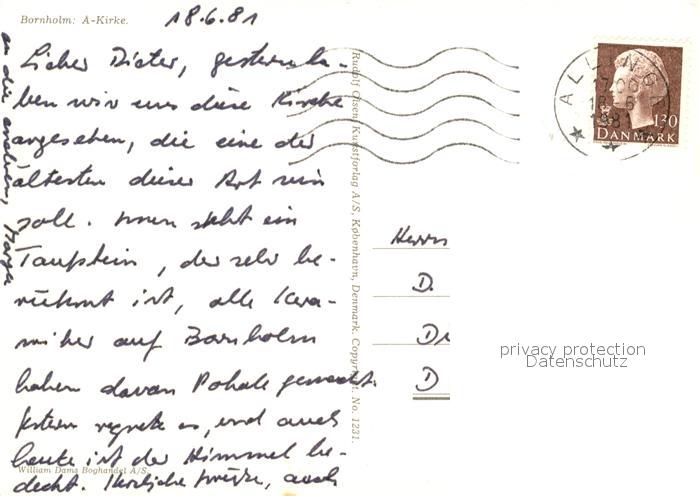 Bornholm: A-Kirke.
18.6.81
Lieber Dieter, gestern ha-
ben wir uns diese Kirche
angesehen, die eine der
ältesten dieser Art sein
soll. Innen steht ein
Taufstein, der sehr be-
rühmt ist, alle Kera-
miker auf Bornholm
haben davon Pokale gemacht.
Gestern regnete es, und auch
heute ist der Himmel be-
deckt. Herzliche Grüße, auch
an die anderen,
William Dams Boghandel A/S.
Rudolf Olsen, Kunstforlag A/S, København, Denmark. Copyright. No. 1231.
ALLINGE
17.06
18.6
1981
130
DANMARK
Herrn
D.
D
privacy protection
Datenschutz